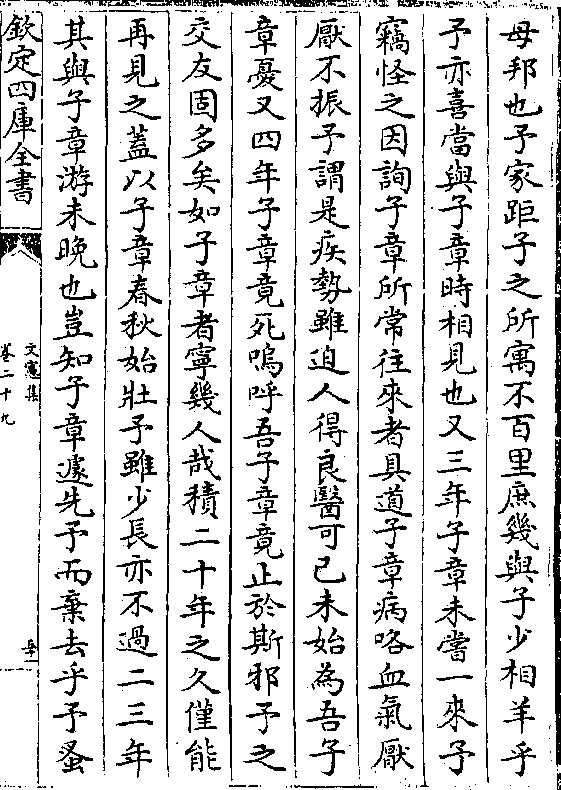 母邦也予家距子之所寓不百里庶幾與子少相羊乎
予亦喜當與子章時相見也又三年子章未嘗一來予
竊怪之因詢子章所常往來者具道子章病咯血氣厭
厭不振予謂是疾勢雖迫人得良醫可已未始為吾子
章憂又四年子章竟死嗚呼吾子章竟止於斯邪予之
交友固多矣如子章者寧幾人哉積二十年之久僅能
再見之蓋以子章春秋始壯予雖少長亦不過二三年
其與子章游未晚也豈知子章遽先予而棄去乎予蚤
欽定四庫全書
文憲集
卷二十九